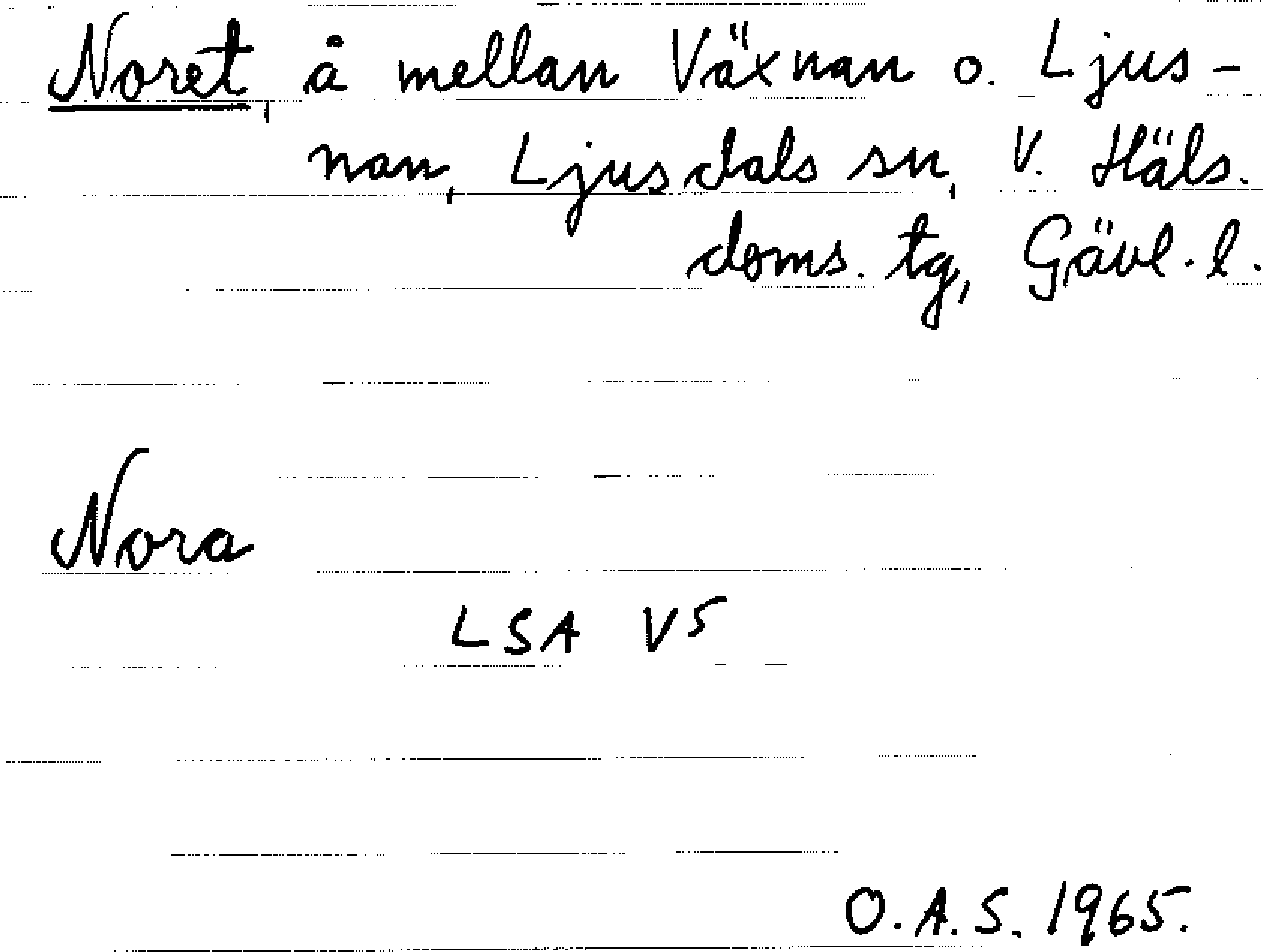 Noret, å mellan Växnan o. Ljus-
nan, Ljusdals sn, V. Häls.
doms. tg, Gävl. l.
Nora
LSA V5
O.A.S. 1965.